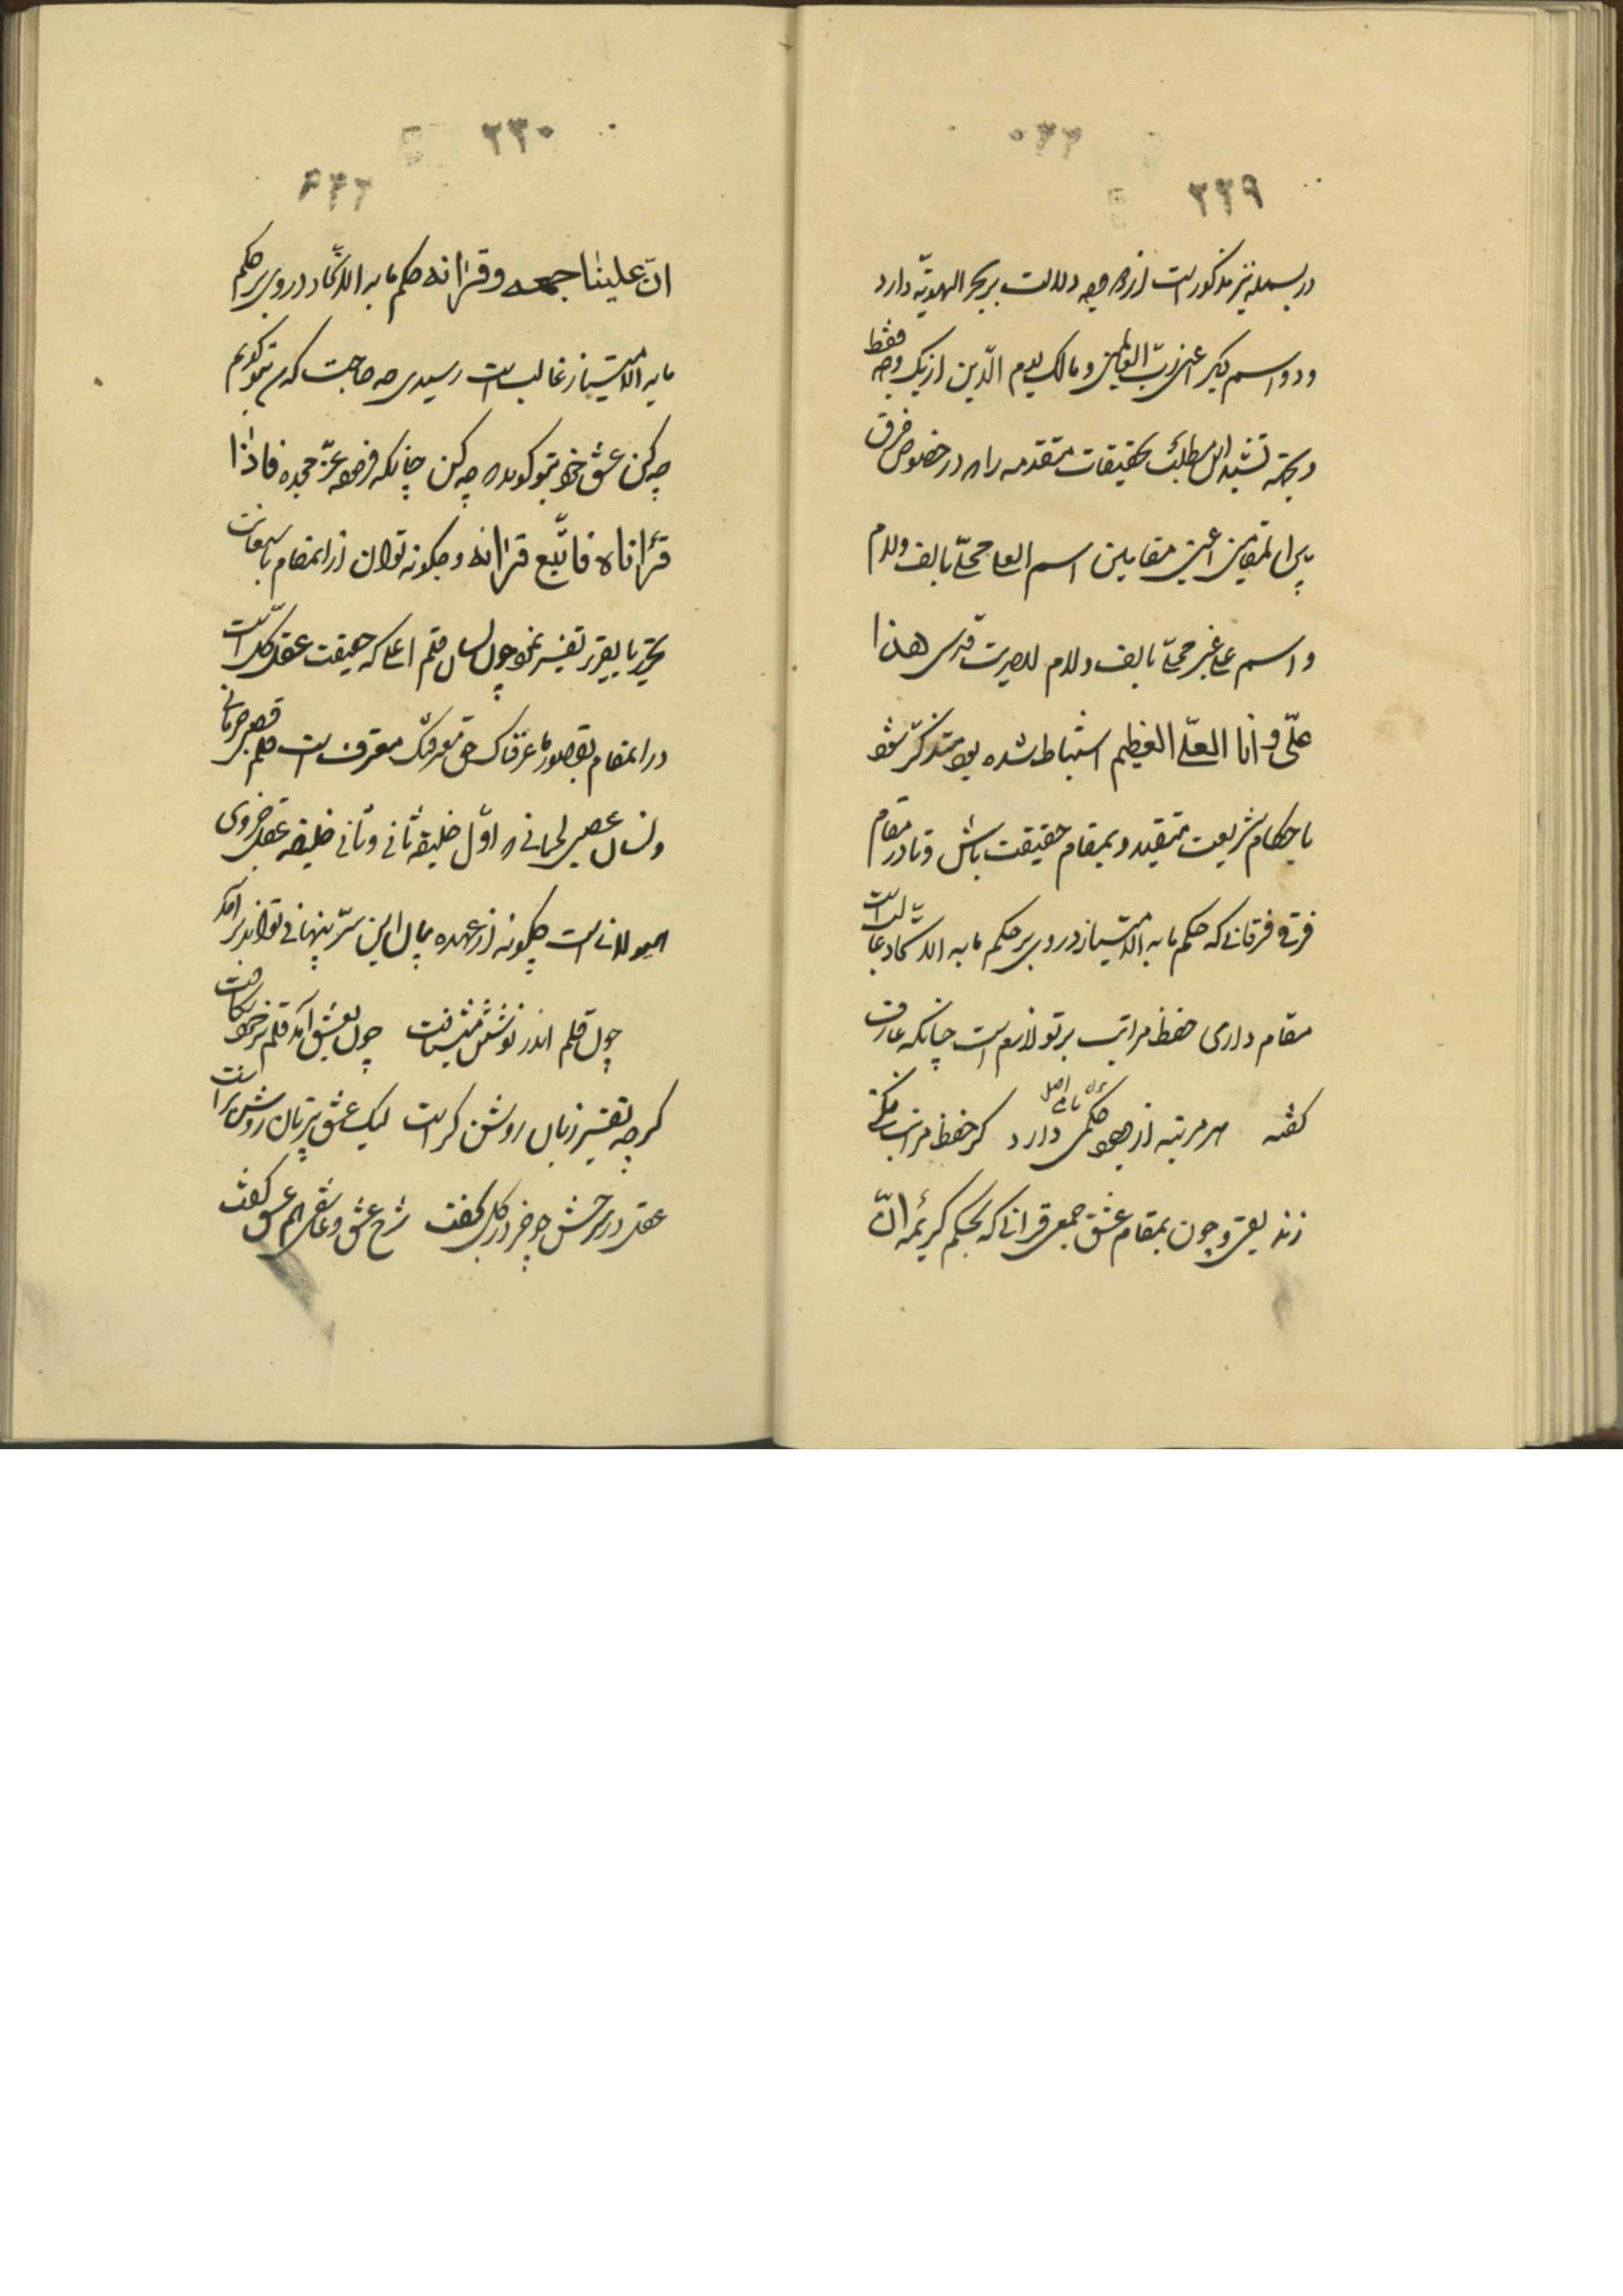 ۲۲۹
در بسمله نیز مذکور است از دو وجه دلالت بر سر الهویّه دارد
و دو اسم دیگر اعنی ربّ العالمین و مالک یوم الدّین از یک وجه فقط
و بجهة تشیید این مطلب تحقیقات متقدمه را در خصوص فرق
این مقامین اعنی مقابلین اسم العلی محلّی بالف و لام
و اسم علی غیر محلّی بالف و لام للبصیرت قدسی هذا
علیّ و انا العلّی العظیم استنباط شده بود متذکّر شو
باحکام شریعت متقید و بمقام حقیقت باش و تا در مقام
فرق فرقانی که حکم ما به الامتیاز در وی بر حکم ما به الاتّحاد غالب است
مقام داری حفظ مراتب بر تو لازم است چنانکه عارف
گفته هر مرتبه از وجود حکمی دارد گر حفظ مراتب نکنی
زندیقی و چون بمقام عشق جمعی قرآنی که بحکم کریمه انّ
۲۳۰
انّ علینا جمعه و قرانه حکم ما به الاتّحاد در وی بر حکم
ما به الامتیاز غالب است رسیدی چه حاجت که من بتو گویم
چه کن عشق خود بتو گوید که چه کن چنانکه فرموده عزّ مجده فاذا
قرأناه فاتّبع قرانه و چگونه توان از این مقام باستعانت
تحریر یا تقریر تفسیر نمود چون لسان قلم اعلی که حقیقت عقل کل است
در این مقام بقصور ما عرفناک حق معرفتک معترف است قلم
و لسان عصبی لحمانی که اوّل خلیفه ثانی و ثانی خلیفه عقل جزوی
هیولانی است چگونه از عهده بیان این سرّ پنهانی تواند برآمد
چون قلم اندر نوشتن میشتافت چون بعشق آمد قلم بر خود شکافت
گرچه تفسیر زبان روشن گر است لیک عشق بی زبان روشن تر است
عقل در شرحش چو خر در گل بخفت شرح عشق و عاشقی هم عشق گفت